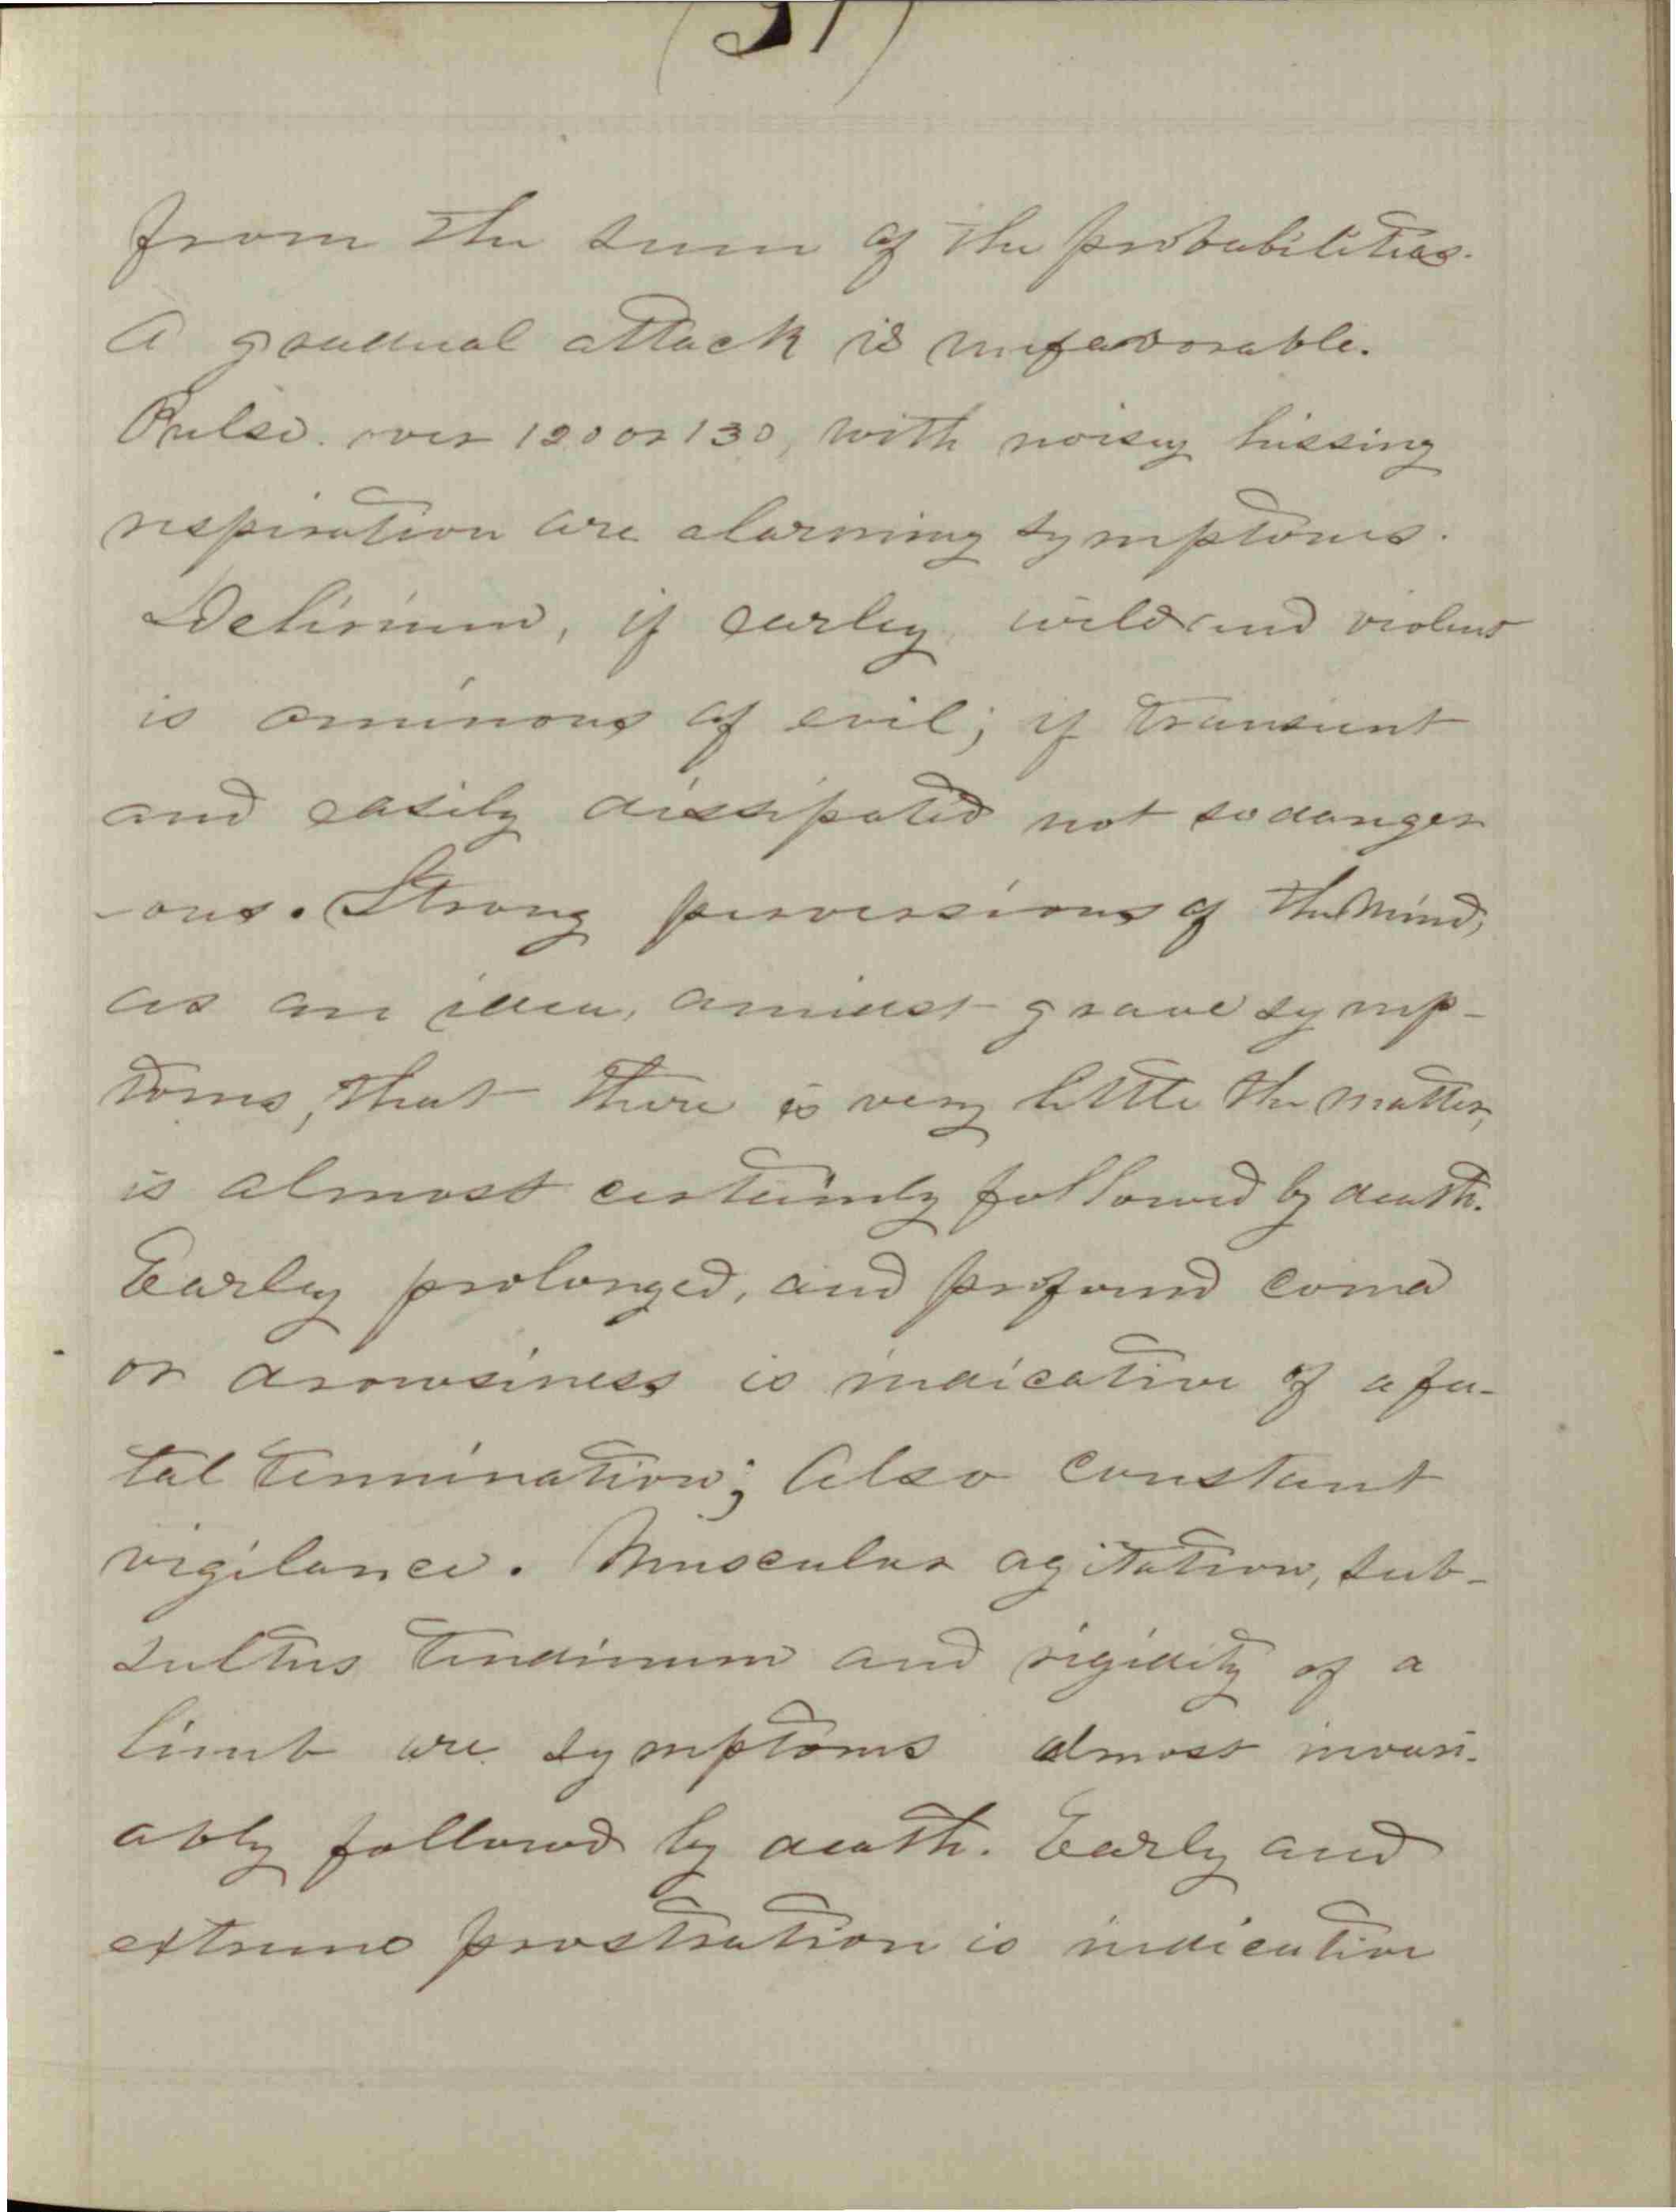 from the sum of the probabilities.
A gradual attack is unfavorable.
Pulse over 120 or 130, with noisy hissing
respiration are alarming symptoms.
Delirium, if early, wild and violent
is ominous of evil; if transient
and easily dissipated not so danger
-ous. Strong perversions of the mind,
as an idea, amidst grave symp-
toms, that there is very little the matter,
is almost certainly followed by death.
Early prolonged, and profound coma
or drowsiness is indicative of a fa-
tal termination; Also constant
vigilance. Muscular agitation, sub-
sultus tendinum and rigidity of a
limb are symptoms almost invari-
ably followed by death. Early and
extreme prostration is indicative